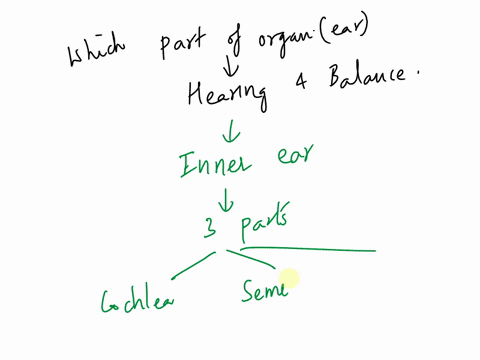 Which part of organ. (ear)
Hearing & Balance.
Inner ear
3 parts
Cochlea Seme